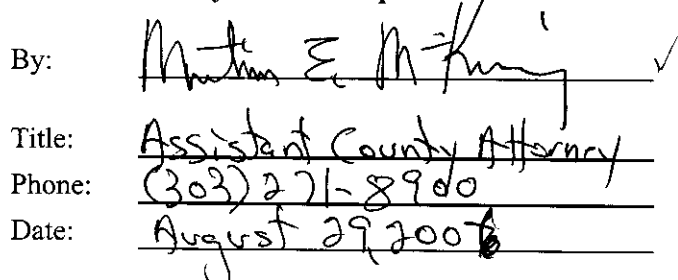 By: Martin E. McKinney
Title: Assistant County Attorney
Phone: (303) 271-8900
Date: August 29, 2006